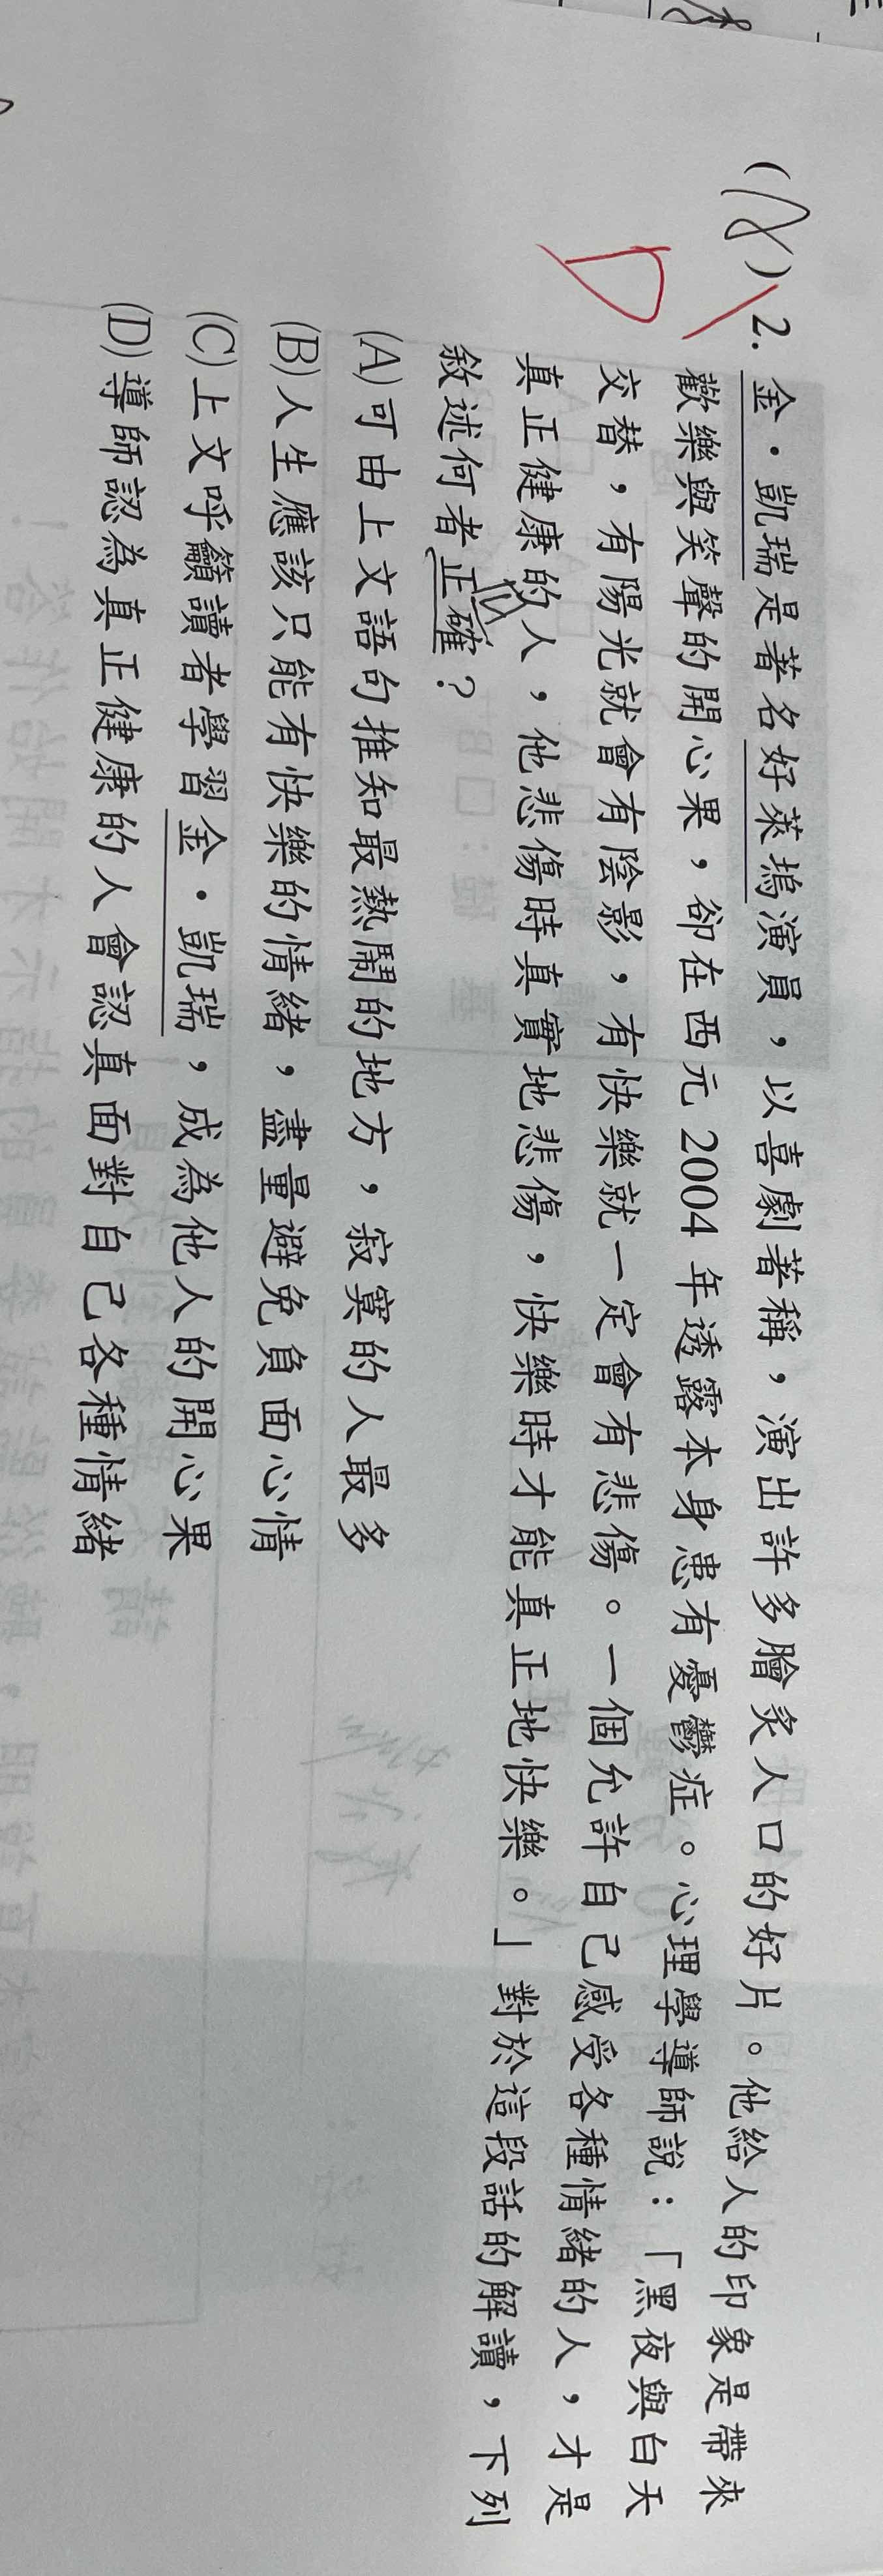 2. 金·凱瑞是著名好萊塢演員，以喜劇著稱，演出許多膾炙人口的好片。他給人的印象是帶來
歡樂與笑聲的開心果，卻在西元 2004 年透露本身患有憂鬱症。心理學導師說：「黑夜與白天
交替，有陽光就會有陰影，有快樂就一定會有悲傷。一個允許自己感受各種情緒的人，才是
真正健康的人，他悲傷時真實地悲傷，快樂時才能真正地快樂。」對於這段話的解讀，下列
敘述何者正確？
(A)可由上文語句推知最熱鬧的地方，寂寞的人最多
(B)人生應該只能有快樂的情緒，盡量避免負面心情
(C)上文呼籲讀者學習金·凱瑞，成為他人的開心果
(D)導師認為真正健康的人會認真面對自己各種情緒
D